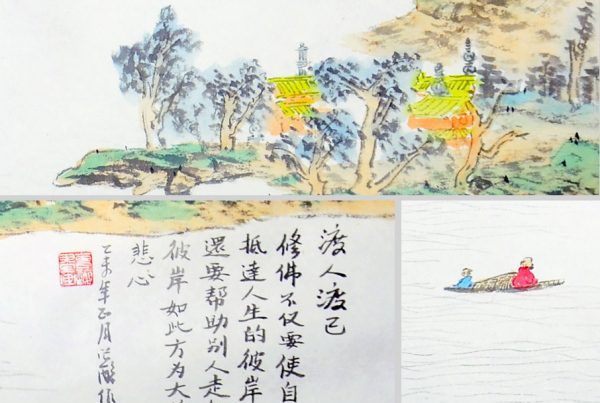 渡人渡己
修佛不仅要使自
抵達人生的彼岸
還要帮助别人走
彼岸如此方为大
悲心
乙未年正月